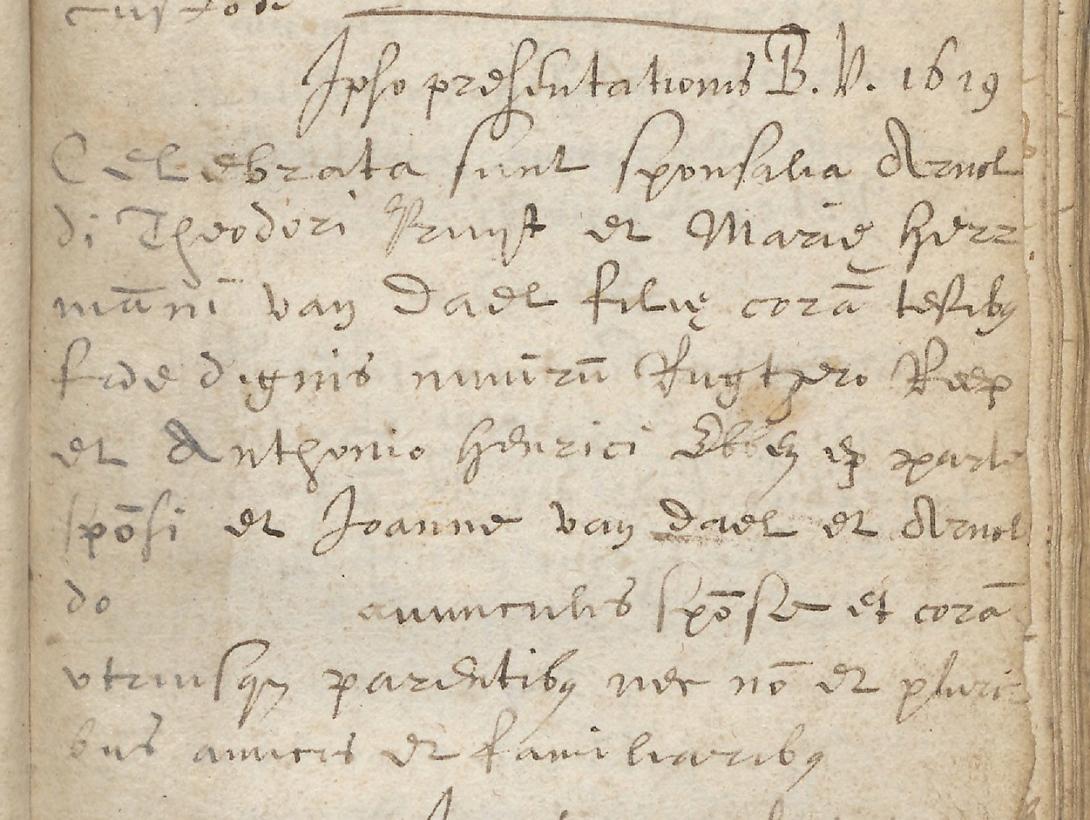 custode
Ipso presentationis B. V. 1619
Celebrata sunt sponsalia Arnol
di Theodori Pruyst et Marię Herr
māni van Dael filię corā testibꝰ
fide dignis nimirū Rugtzero Reep
et Anthonio Henrici Ebben ex parte
spōsi et Joanne van Dael et Arnol
do avunculis spōse et corā
utriusqꝫ parentibꝰ nec nō et pluri
bus amicis et familiaribꝰ